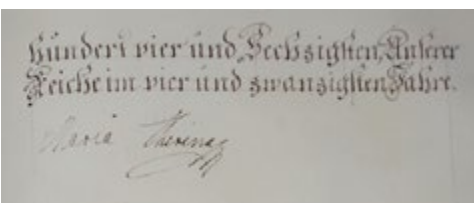 Hundert vier und Sechzigsten, Unserer
Reiche im vier und zwanzigsten Jahre.
Maria Theresia